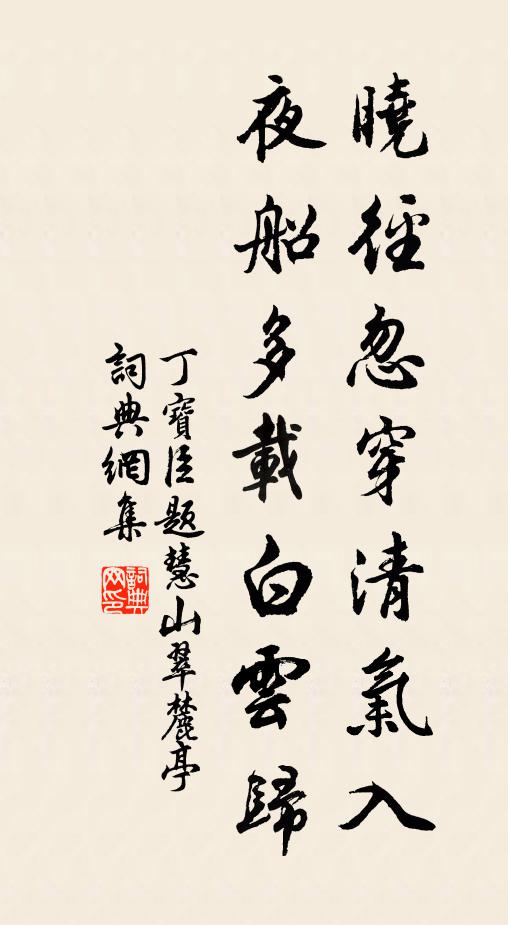 曉徑忽穿清氣入
夜船多載白雲歸
丁寶臣題慧山翠麓亭
詞典網集
詞典
网印